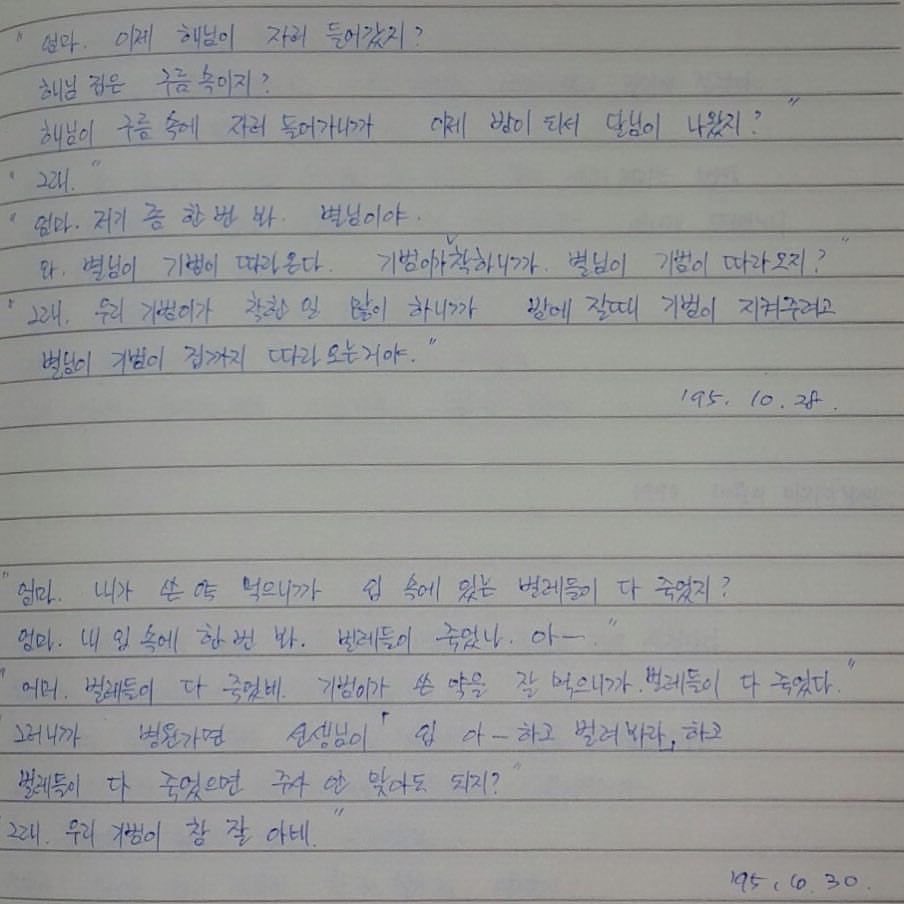 " 엄마. 이제 해님이 자러 들어갔지?
해님 집은 구름 속이지?
해님이 구름 속에 자러 들어가니까 이제 밤이 되서 달님이 나왔지? "
" 그래. "
" 엄마. 저기 좀 한 번 봐. 별님이야.
와. 별님이 기범이 따라온다. 기범이가 착하니까. 별님이 기범이 따라오지? "
" 그래. 우리 기범이가 착한 일 많이 하니까 밤에 잘때 기범이 지켜주려고
별님이 기범이 집까지 따라 오는거야. "
'95. 10. 28.
" 엄마. 내가 쓴 약 먹으니까 입 속에 있는 벌레들이 다 죽었지?
엄마. 내 입 속에 한 번 봐. 벌레들이 죽었나. 아ㅡ. "
" 어머. 벌레들이 다 죽었네. 기범이가 쓴 약을 잘 먹으니까. 벌레들이 다 죽었다. "
그러니까 병원가면 선생님이 ' 입 아ㅡ하고 벌려봐라, 하고
벌레들이 다 죽었으면 주사 안 맞아도 되지? "
그래. 우리 기범이 참 잘 아네. "
'95. 10. 30.